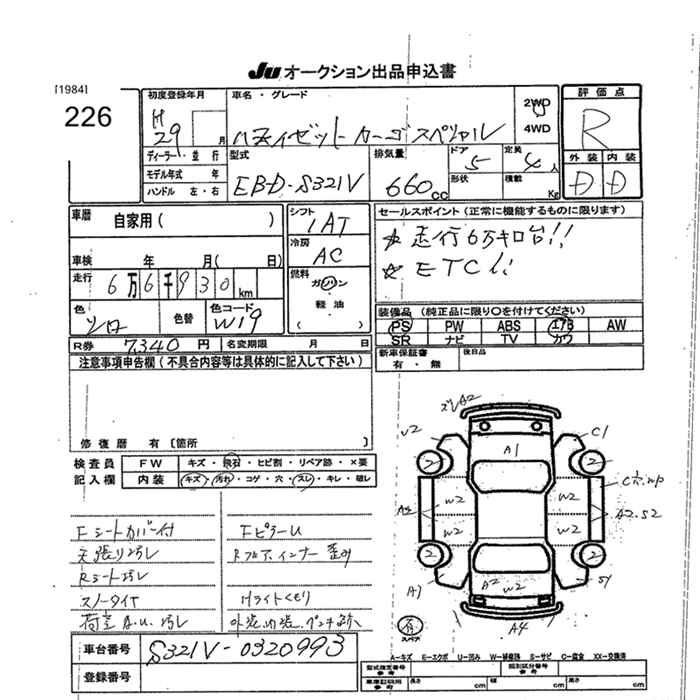 JU オークション出品申込書
[1984]
226
初度登録年月
H
29 月
ディーラー・並行
モデル年式 年
ハンドル 左・右
車名・グレード
ハイゼット カーゴ スペシャル
2WD
4WD
型式
EBD-S321V
排気量
660cc
ドア
5
形状
定員
4人
積載
Kg
評価点
R
外装 内装
D D
車歴
自家用( )
車検 年 月( 日)
走行 6万6千930km
色
シロ
色替
色コード
W19
シフト
IAT
冷房
AC
燃料
ガソリン
軽油
( )
セールスポイント(正常に機能するものに限ります)
☆ 走行6万キロ台!!
☆ ETC!!
装備品(純正品に限り○を付けてください)
PS PW ABS エアB AW
SR ナビ TV カワ
新車保証書
有・無
後日品
R券 7,340円 名変期限 月 日
注意事項申告欄(不具合内容等は具体的に記入して下さい)
修復歴 有[箇所 ]
検査員
記入欄
FW キズ・飛石・ヒビ割・リペア跡・×要
内装 キズ・汚れ・コゲ・穴・スレ・キレ・破レ
Fシートカバー付
天張り汚レ
Rシート汚レ
スノータイヤ
荷室A.U.汚レ
FピラーU
Rフロア、インナー歪み
Hライトくもり
外装、内装、パンチ跡
A2
V2
C1
A1
2 2
W2 W2
W2 W2
A2.S2
2 2
A2
W2
A1
S1
A4
有
スペア
A-キズ E-エクボ U-凹み W-補修跡 S-サビ C-腐食 XX-交換済
車台番号
S321V-0320993
登録番号
型式指定番号
参考
類別区分番号
参考
車庫証明用
参考
長さ cm 幅 cm 高さ cm